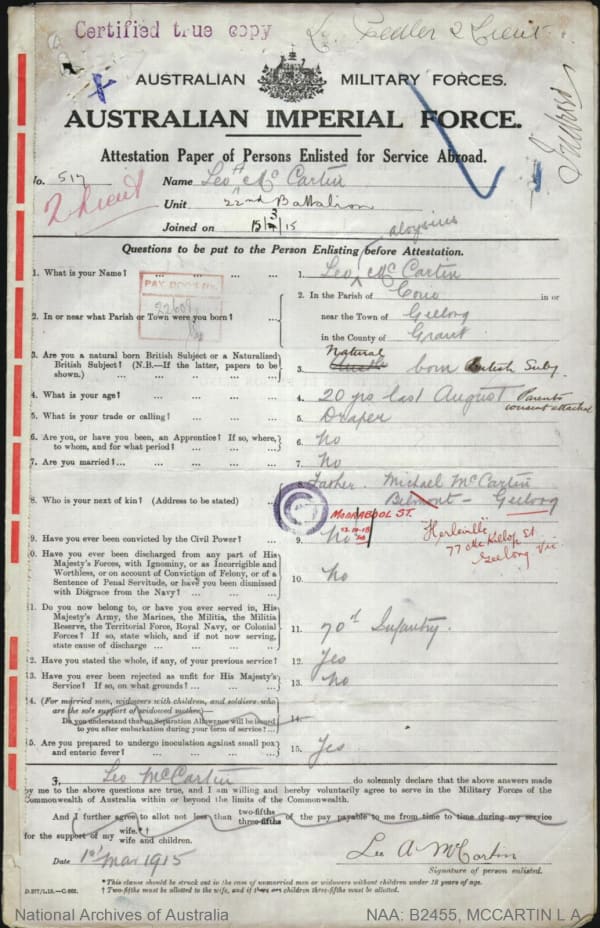 Certified true copy
2 Lieut
AUSTRALIAN MILITARY FORCES.
AUSTRALIAN IMPERIAL FORCE.
Attestation Paper of Persons Enlisted for Service Abroad.
No. 517 Name Leo A McCartin
2 Lieut
Unit 22nd Battalion
Joined on 15/3/15
Aloysius
Questions to be put to the Person Enlisting before Attestation.
1. What is your Name? ... ... ... 1. Leo McCartin
PAY BOOK No.
2. In or near what Parish or Town were you born? ... 2. In the Parish of Corio in or
near the Town of Geelong
in the County of Grant
3. Are you a natural born British Subject or a Naturalized
British Subject? (N.B.—If the latter, papers to be
shown.) ... ... ... ... 3. Natural born British Subj
4. What is your age? ... ... ... 4. 20 yrs last August Parents consent attached
5. What is your trade or calling? ... ... 5. Draper
6. Are you, or have you been, an Apprentice? If so, where,
to whom, and for what period? ... ... 6. No
7. Are you married?... ... ... ... 7. No
8. Who is your next of kin? (Address to be stated) ... 8. Father. Michael McCartin
Belmont - Geelong
MOORABOOL ST.
77 McKillop St
Geelong Vic
9. Have you ever been convicted by the Civil Power? ... 9. No
0. Have you ever been discharged from any part of His
Majesty's Forces, with Ignominy, or as Incorrigible and
Worthless, or on account of Conviction of Felony, or of a
Sentence of Penal Servitude, or have you been dismissed
with Disgrace from the Navy? ... ... 10. No
1. Do you now belong to, or have you ever served in, His
Majesty's Army, the Marines, the Militia, the Militia
Reserve, the Territorial Force, Royal Navy, or Colonial
Forces? If so, state which, and if not now serving,
state cause of discharge ... ... ... 11. 70th Infantry.
2. Have you stated the whole, if any, of your previous service? 12. Yes
3. Have you ever been rejected as unfit for His Majesty's
Service? If so, on what grounds? ... ... 13. No
4. (For married men, widowers with children, and soldiers who
are the sole support of widowed mother)—
Do you understand that no Separation Allowance will be issued
to you after embarkation during your term of service? ... 14.
5. Are you prepared to undergo inoculation against small pox
and enteric fever? ... ... ... 15. Yes
I, Leo McCartin do solemnly declare that the above answers made
by me to the above questions are true, and I am willing and hereby voluntarily agree to serve in the Military Forces of the
Commonwealth of Australia within or beyond the limits of the Commonwealth.
And I further agree to allot not less than two-fifths three-fifths of the pay payable to me from time to time during my service
for the support of my wife.*† wife and children.
Date 1st Mar 1915 Leo A McCartin
Signature of person enlisted.
* This clause should be struck out in the case of unmarried men or widowers without children under 18 years of age.
† Two-fifths must be allotted to the wife, and if there are children three-fifths must be allotted.
National Archives of Australia NAA: B2455, MCCARTIN L A